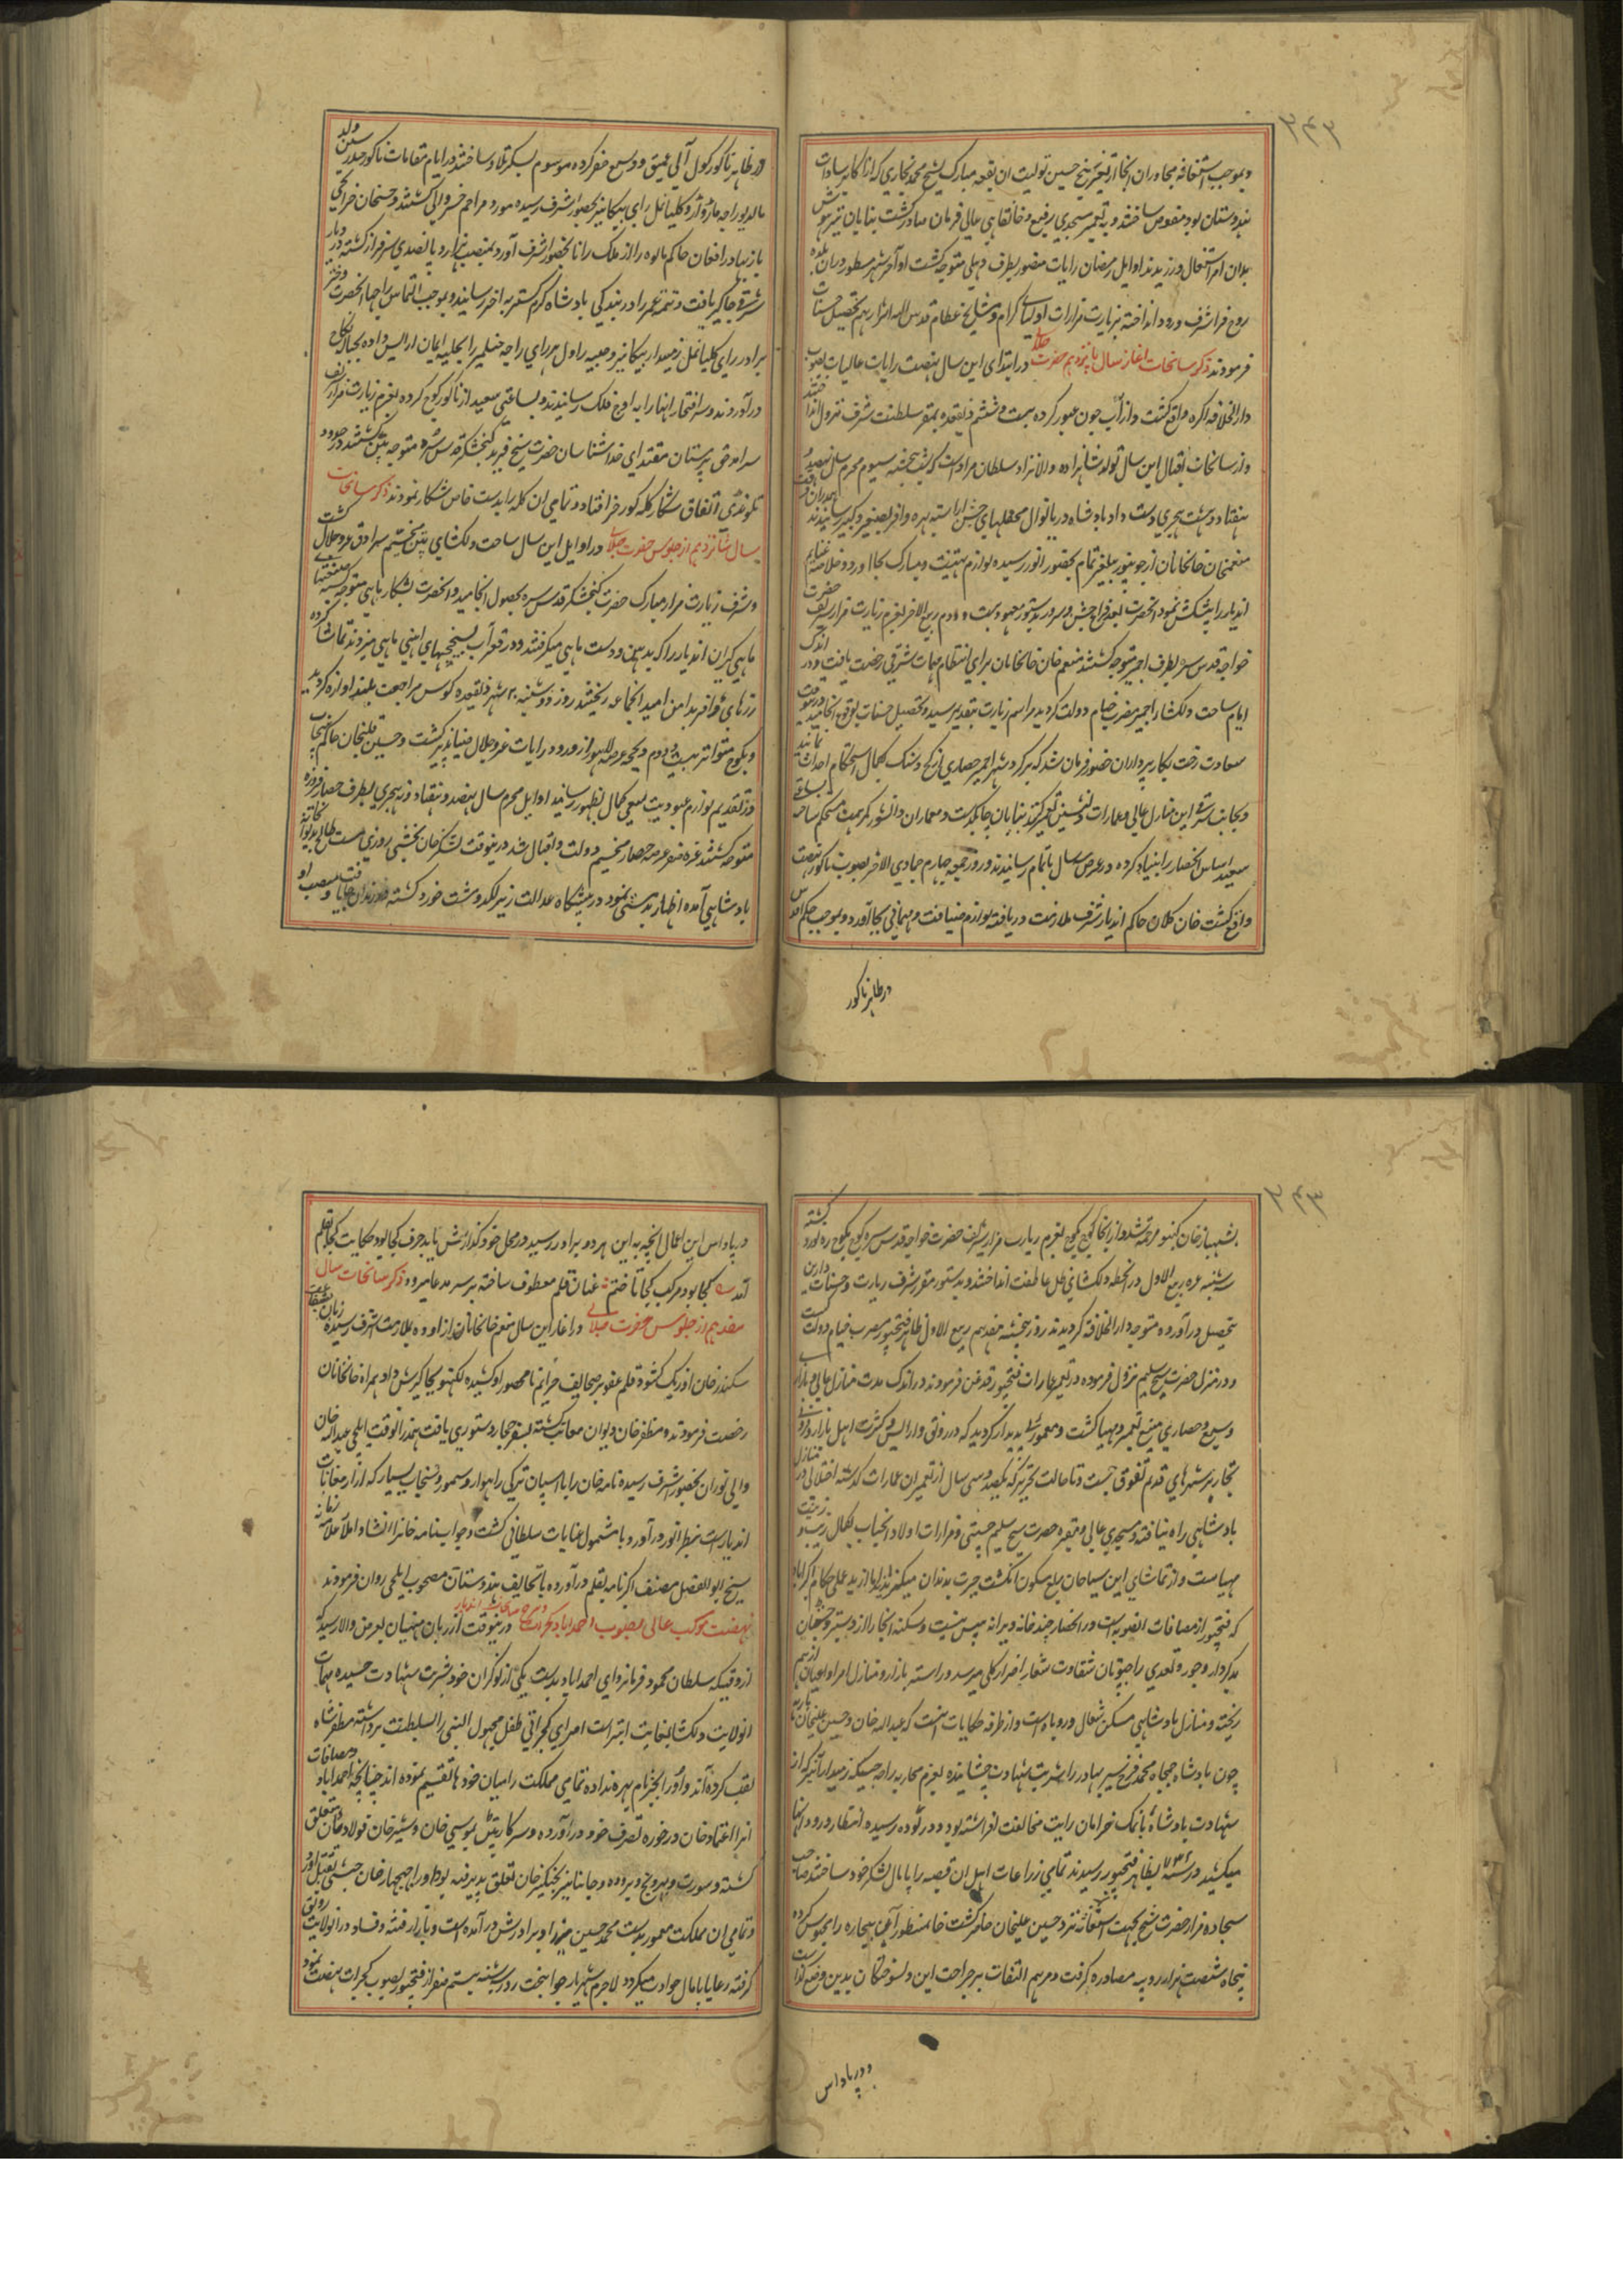 و بموجب استغاثه مجاوران انجا از تغیر شیخ حسین تولیت ان بقعه مبارک بشیخ محمد بخاری که از اکابر سادات
هندوستان بود مفوض ساختند و به تعمیر مسجدی رفیع و خانقاهی عالی فرمان صادر گشت بنایان تیزهوش
بدان امر اشتغال ورزیدند اوایل رمضان رایات منصور بطرف دهلی متوجه گشت او آخر شهر مسطور دران بلده
روح فزا شرف ورود انداخته بزیارت مزارات اولیای کرام و مشایخ عظام قدس الله اسرارهم تحصیل حسنات
فرمودند ذکر سانحات اغاز سال پانزدهم حضرت جلالی در ابتدای این سال نهضت رایات عالیات بصوب
دار الخلافه اکره واقع گشت و از آب جون عبور کرده بیست و ششم ذیقعده بمقر سلطنت شرف نزول انداختند
و از سانحات اقبال این سال تولد شاهزاده والانژاد سلطان مراد است که شب پنجشنبه سیوم محرم سال نهصد و
هفتاد و هشت هجری دست داد بادشاه دریا نوال محفلهای جشن اراسته بهره وافر بصغیر و کبیر رسانیدند
منعمخان خانخانان از جونپور بحضور انور رسیده لوازم تهنیت و مبارک بجا اورد و خلاصه غنایم
اندیار را پیشکش نمود انحضرت بعد فراغ جشن و سرور بدستور معهود بیست و دوم ربیع الاخر بعزم زیارت مزار شریف حضرت
خواجه قدس سره بطرف اجمیر متوجه گشتند منعم خان خانخانان برای انتظام مهمات شرقی رخصت یافت و در اندک
ایام ساحت دلکشا اجمیر مضرب خیام دولت گردید مراسم زیارت بتقدیم رسید و تحصیل حسنات بوقوع انجامید درینوقت
سعادت رخت بکارپردازان حضور فرمان شد که بر گرد شهر اجمیر حصاری از گچ و سنگ بکمال استحکام احداث نمایند
و بجانب شرقی این منازل عالی و عمارات دلنشین تعمیر کنند بنایان چابکدست و معماران دانشور کمر همت مستحکم ساخته بساعتی
سعید اساس انحصار را بنیاد کرده در عرض سه سال باتمام رسانیدند و روز جمعه چهارم جمادی الاخر بصوب ناکور نهضت
واقع گشت خان کلان حاکم اندیار شرف ملازمت دریافته لوازم ضیافت و مهمانی بجا آورد و بموجب حکم اقدس
در ظاهر ناکور
در ظاهر ناکور کول آبی عمیق و وسیع حفر کرده موسوم بسکر تلاو ساختند در ایام مقامات ناکور چندرسین ولد
مالدیو راجه ماروار و کلیانمل رای بیکانیر بحضور اشرف رسیده مورد مراحم خسروانی گشتند و حسنخان خزانچی
باز بهادر افغان حاکم مالوه را از ملک رانا بحضور اشرف آورد بمنصب هزار و پانصدی سرفراز گشته در دیار
شرقرو جاگیر یافت و تتمه عمر را در بندگی بادشاه کرم گستر به اخر رسانید و بموجب التماس راجها انحضرت دختر
برادر رای کلیانمل زمیندار بیکانیر و صبیه راول هر رای راجه جیسلمیر را بحلیه ایمان ارایش داده بحباله نکاح
درآوردند و سر افتخار انها را به اوج فلک رسانیدند و بساعتی سعید از ناکور کوچ کرده بعزم زیارت مزار شریف
سرآمد حق پرستان مقتدای خداشناسان حضرت شیخ فرید گنجشکر قدس سره متوجه پتن گشتند در حدود
تلوندی اتفاق شکار گله گورخر افتاد و تمامی ان گله را بدست خاص شکار نمودند ذکر سانحات
سال شانزدهم از جلوس حضرت جلالی در اوایل این سال ساحت دلکشای پتن مخیم سرادق عز و جلال گشت
و شرف زیارت مزار مبارک حضرت گنجشکر قدس سره بحصول انجامید و انحضرت بشکار ماهی متوجه گشته
ماهی گیران اندیار را که بدهن و دست ماهی میگرفتند و در قعر آب بسیخچهای اهنی ماهی میزدند تماشا کرده
زرهای وافر بدامن امید انجماعه ریختند روز دوشنبه ۲۰ شهر ذیقعده کوس مراجعت بلند اوازه گردید
و بکوچ متواتر بیست و دوم ذیحجه عرصه لاهور از ورود رایات عز و جلال ضیاپذیر گشت و حسین قلیخان حاکم پنجاب
در تقدیم لوازم عبودیت سعی کمال بظهور رسانید اوایل محرم سال نهصد و هفتاد و نه هجری بطرف حصار فیروزه
متوجه گشتند غره صفر عرصه حصار مخیم دولت و اقبال شد درینوقت لشکر خان بخشی روزی مست طالح بدیوانخانه
بادشاهی آمده اظهار بدمستی نمود در پیشگاه عدالت زیر لکد و مشت خورد گشته
بشهباز خان کنبو مرحمت شد و از انجا کوچ بکوچ بعزم زیارت مزار شریف حضرت خواجه قدس سره کوچ بکوچ ره نورد گشته
سه شنبه غره ربیع الاول در انخطه دلکشای ظل عاطفت انداختند و بدستور مقرر شرف زیارت و حسنات دارین
بتحصیل درآورده متوجه دار الخلافه گردیدند روز پنجشنبه هفدهم ربیع الاول ظاهر فتحپور مضرب خیام دولت گشت
و در منزل حضرت شیخ سلیم نزول فرموده در تعمیر عمارات فتحپور قدغن فرمودند در اندک مدت منازل عالی و بازار
وسیع و حصاری منیع تعمیر و مهیا گشت و معموری پدیدار گردید که در رونق و ارایش و کثرت اهل بازار و فزونی
تجار بر شهرهای قدیم تفوق جست و تا حالت تحریر که یکصد و سی سال از تعمیر ان عمارات گذشته اختلالی در منازل
بادشاهی راه نیافته و مسجدی عالی و مقبره حضرت شیخ سلیم چشتی و مزارات اولاد انجناب بکمال زیب و زینت
مهیاست و از تماشای این سیاحان ربع مسکون انگشت حیرت بدندان میگیرند اما از بد عملی حکام اکبراباد
که فتحپور از مضافات انصوبه است در انحصار چند خانه ویرانه بیش نیست و سکنه انجا را از دستبرد جتان
بدکردار و جور و تعدی راجپوتان شقاوت شعار اضرار کلی میرسد و راسته بازار و منازل امرا و اعیان از هم
ریخته و منازل بادشاهی مسکن شغال و روباه است و از طرفه حکایات اینست که عبد الله خان و حسین علیخان بارهه
چون بادشاه جمجاه محمد فرخ سیر بهادر را شربت شهادت چشانیده بعزم محاربه راجه جیسنگه زمیندار آنبیر که از
شهادت بادشاه بانمک حرامان رایت مخالفت افراشته بود و در توده رسیده انتظار ورود انها
میکشید در سنه ۱۱۳۲ بظاهر فتحپور رسیدند تمامی زراعات اهل ان قصبه را پامال لشکر خود ساختند صاحب
سجاده مزار حضرت شیخ بجهت استغاثه نزد حسین علیخان حاضر گشت خانمنظور آن بیچاره را محبوس کرده
پنجاه شصت هزار روپیه مصادره گرفت و مرهم التفات بر جراحت این دلسوختگان بدین وضع گذاشت
و در پاداش
در پاداش این اعمال انچه به این هر دو برادر رسید در محل خود گذارش یابد حرف کجا بود حکایت کجا قلم
آمد کجا بود مرکب کجا تاختم عنان قلم معطوف ساخته بر سر مدعا میرود ذکر سانحات سال
هفدهم از جلوس حضرت جلالی در اغاز این سال منعم خانخانان از اوده بملازمت اشرف رسیده
سکندر خان اوزبک گشود قلم عفو بر صحایف جرایم نامحصور او کشیده لکهنو بجاگیرش داد همراه خانخانان
رخصت فرمودند و مظفر خان دیوان معاتب گشته بسفر حجاز دستوری یافت همدرانوقت ایلچی عبد الله خان
والی توران بحضور اشرف رسیده نامه خان را با اسپان ترکی راهوار و سمور و سنجاب بسیار که از ارمغانات
اندیار است بنظر انور درآورد و با شمول عنایات سلطانی گشت و جواب نامه خانرا انشا و املا علامه زمانه
شیخ ابو الفضل مصنف اکبرنامه بقلم درآورده با تحایف هندوستان مصحوب ایلچی روان فرمودند
نهضت موکب عالی بصوب احمداباد گجرات درینوقت از زبان منهیان بعرض والا رسید که
از وقتیکه سلطان محمود فرمانروای احمداباد بدست یکی از نوکران خود شربت شهادت چشیده مهمات
انولایت دلکشا بغایت ابتر است امرای گجراتی طفل مجهول النسبی را بسلطنت برداشته مظفر شاه
لقب کرده‌اند و او را بجز نام بهره نداده تمامی مملکت را میان خودها تقسیم نموده اند چنانچه احمداباد و مضافات
انرا اعتماد خان در حوزه تصرف خود درآورده و سرکار پتن بموسی خان و شیرخان فولادخان متعلق
گشته و سورت و بهروج و بروده و جانپانیر بچنگیز خان تعلق پذیرفته بود او را جهجهار خان حبشی بقتل آورد
و تمامی ان مملکت معمور بدست محمد حسین میرزا و برادرانش درآمده است و بازار فتنه و فساد در انولایت رونق
گرفته رعایا پامال حوادث میگردد لاجرم شهریار جوانبخت روز سه شنبه بیستم صفر از فتحپور بصوب گجرات نهضت نمود